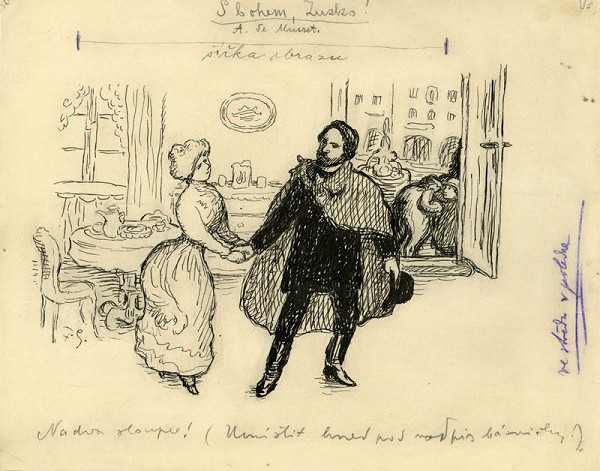 S bohem, Zuzko!
A. de Musset.
šířka obrazu
F. G.
ve sbírku v polička
Na dva sloupce! (Umístit hned pod nadpis básničky.)